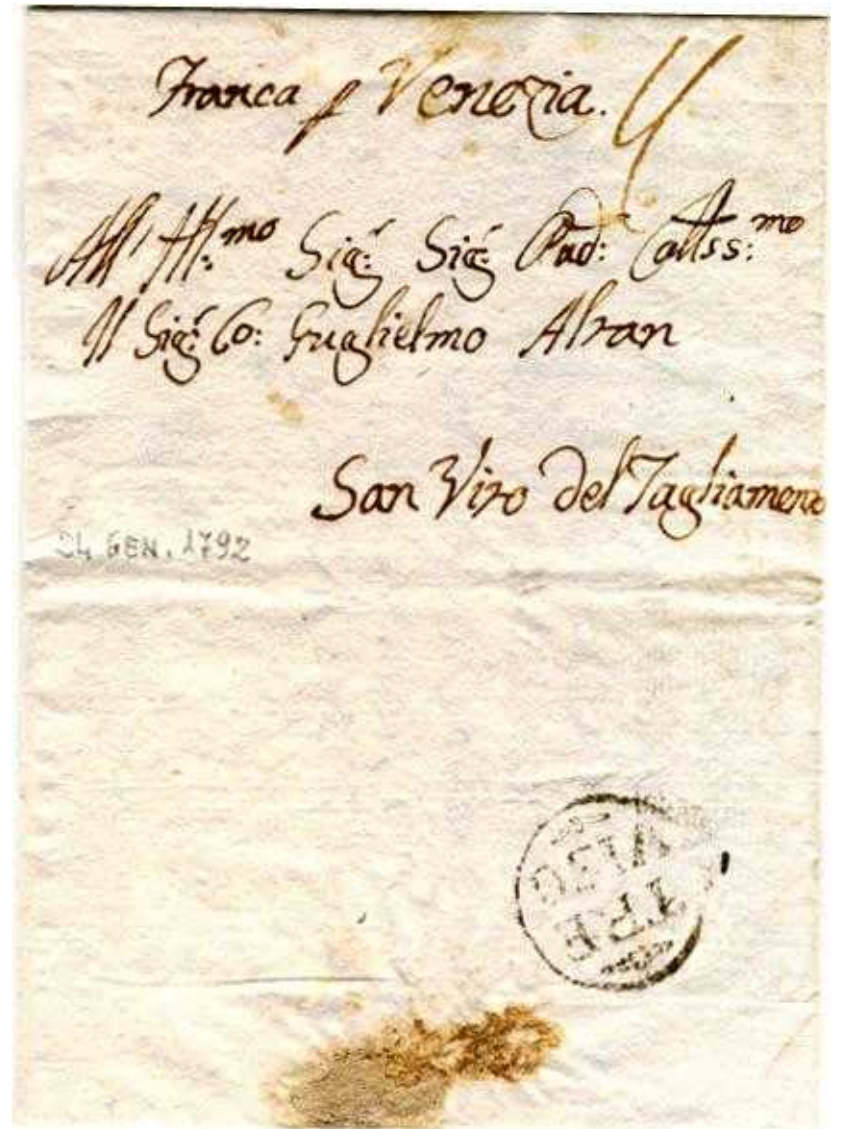 Franca p Venezia.
All' Ill:mo Sigr: Sigr: Pad: Coll:ss:mo
Il Sigr: Co: Guglielmo Altan
San Vito del Tagliamento
24 GEN. 1792
TRE
VISO